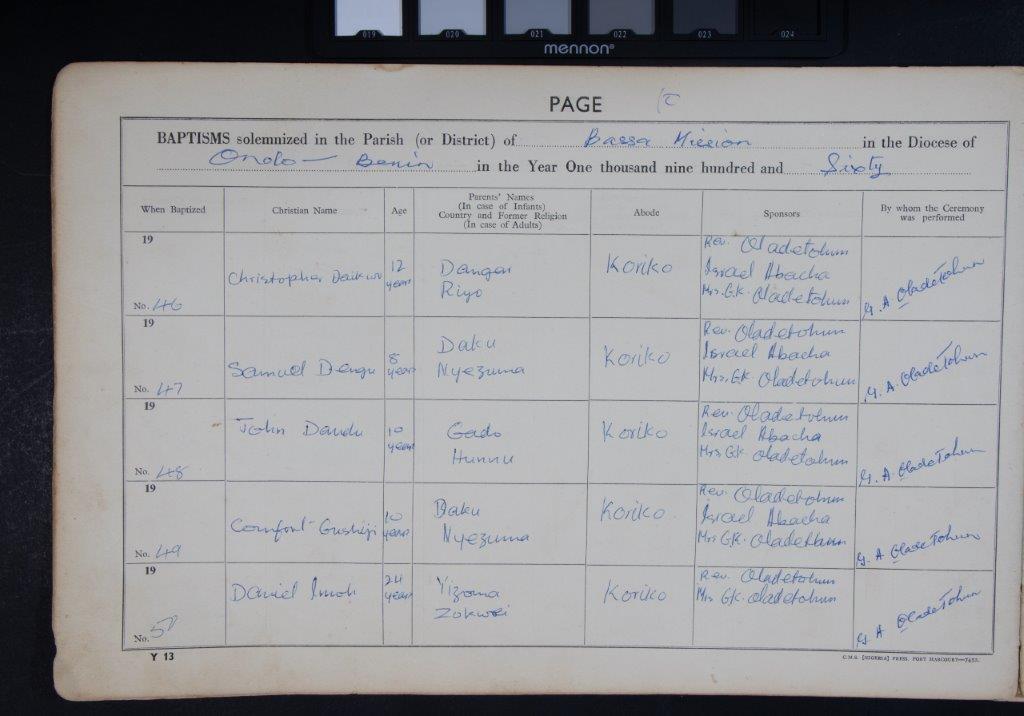 019 020 021 022 023 024
mennon®
PAGE
BAPTISMS solemnized in the Parish (or District) of Bassa Mission in the Diocese of
Ondo - Benin in the Year One thousand nine hundred and Sixty
When Baptized
Christian Name
Age
Parents' Names
(In case of Infants)
Country and Former Religion
(In case of Adults)
Abode
Sponsors
By whom the Ceremony
was performed
19
No. 46
Christopher
12
years
Dangar
Riyo
Koriko
Rev. Oladetohun
Israel Abacha
Mrs. G.K. Oladetohun
G. A. OladeTohun
19
No. 47
Samuel Dengu
8
years
Daku
Nyezuma
Koriko
Rev. Oladetohun
Israel Abacha
Mrs. G.K. Oladetohun
G. A. OladeTohun
19
No. 48
John Daudu
10
years
Gado
Hunnu
Koriko
Rev. Oladetohun
Israel Abacha
Mrs G.K. Oladetohun
G. A. OladeTohun
19
No. 49
Comfort Gushiji
10
years
Daku
Nyezuma
Koriko
Rev. Oladetohun
Israel Abacha
Mrs G.K. Oladetohun
G. A OladeTohun
19
No. 50
Daniel
24
years
Yizama
Koriko
Rev. Oladetohun
Mrs G.K. Oladetohun
G. A OladeTohun
Y 13
C.M.S. [NIGERIA] PRESS, PORT HARCOURT—7455.